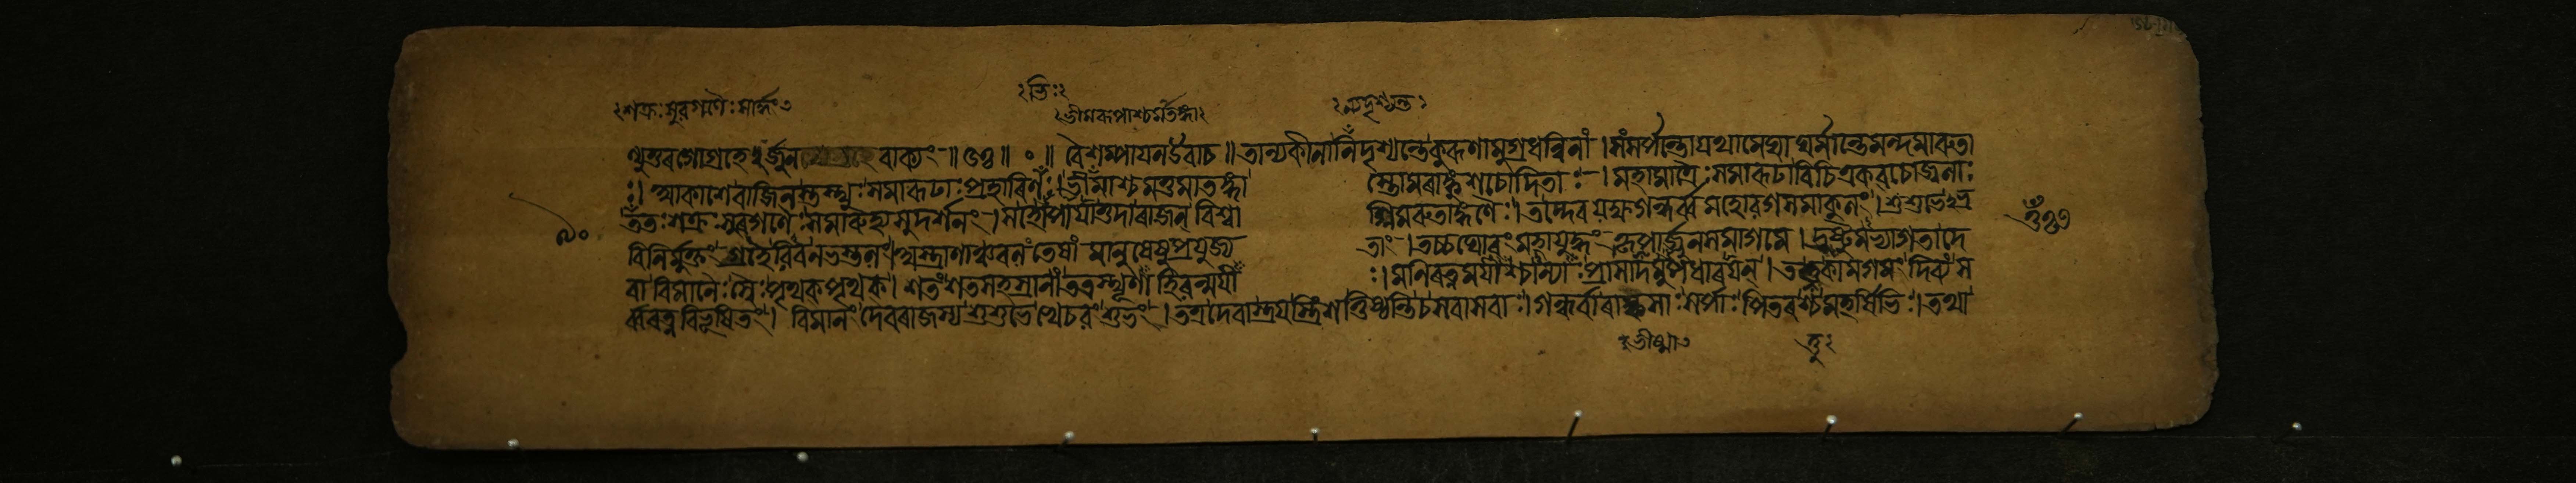 শক্রঃ সুরগণৈঃ সমারুহ্য
ভিঃ
ভীমরূপাশ্চ মাতঙ্গা
ন্যদৃশ্যন্ত
ত্যুত্তরগোগ্রহে ঽর্জুন বাক্যং ॥ ৫১ ॥ ০ ॥ বৈশম্পায়ন উবাচ ॥ তান্যনীকানি দৃশ্যন্তে কুরূণামুগ্রধন্বিনাং । সংসর্পন্তো যথা মেঘা ঘর্মান্তে মন্দমারুতা
ঃ । আকাশে বাজিনস্তস্থুঃ সমারূঢাঃ প্রহারিণঃ । ভীমাশ্চ মত্তমাতঙ্গা স্তোমরাঙ্কুশচোদিতাঃ । মহামাত্রৈঃ সমারূঢা বিচিত্রকবচোজ্জ্বলাঃ
ততঃ শক্রঃ সুরগণৈঃ সমারুহ্য সুদর্শনং । সহোপায়াত্তদা রাজন্ বিশ্বা শ্বিমরুতাঙ্গণৈঃ । তদ্দেবযক্ষগন্ধর্ব্বমহোরগসমাকুলং । শুশুভেঽভ্র
বিনির্মুক্তং গ্রহৈরিব নভস্তলং । অস্ত্রাণাঞ্চ বলং তেষাং মানুষেষু প্রযুজ্য তাং । তচ্চ ঘোরং মহাযুদ্ধং কৃপার্জ্জুনসমাগমে । দ্রষ্টুমভ্যাগতা দে
বা বিমানৈঃ স্বৈঃ পৃথক পৃথক । শতং শতসহস্রানাং তত্র স্থূণা হিরন্ময়ী ঃ । মনিরত্নময়ী চান্যাঃ প্রাসাদমুপধারয়ন্ । তত্র কামগমং দিব্যং স
র্ব্বরত্নবিভূষিতং । বিমানং দেবরাজস্য শুশুভে খেচরং শুভং । তত্র দেবাস্ত্রয়স্ত্রিংশত্তিষ্ঠন্তি চ সবাসবাঃ । গন্ধর্ব্বা রাক্ষসাঃ সর্পাঃ পিতরশ্চ মহর্ষিভিঃ । তথা